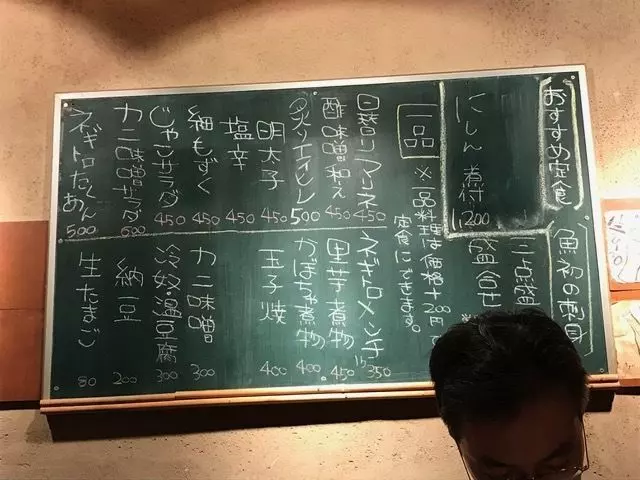 おすすめ定食
にしん煮付 1,200
魚初の刺身
三点盛
盛合せ
一品
※一品料理は価格+200円で
定食にできます。
日替りマリネ 450
酢味噌和え 450
炙りエイヒレ 500
明太子 450
塩辛 450
細もずく 450
じゃこサラダ 450
カニ味噌サラダ 600
ネギトロたくあん 500
ネギトロメンチ 350
里芋煮物 450
かぼちゃ煮物 400
玉子焼 400
カニ味噌 300
冷奴温豆腐 300
納豆 200
生たまご 80